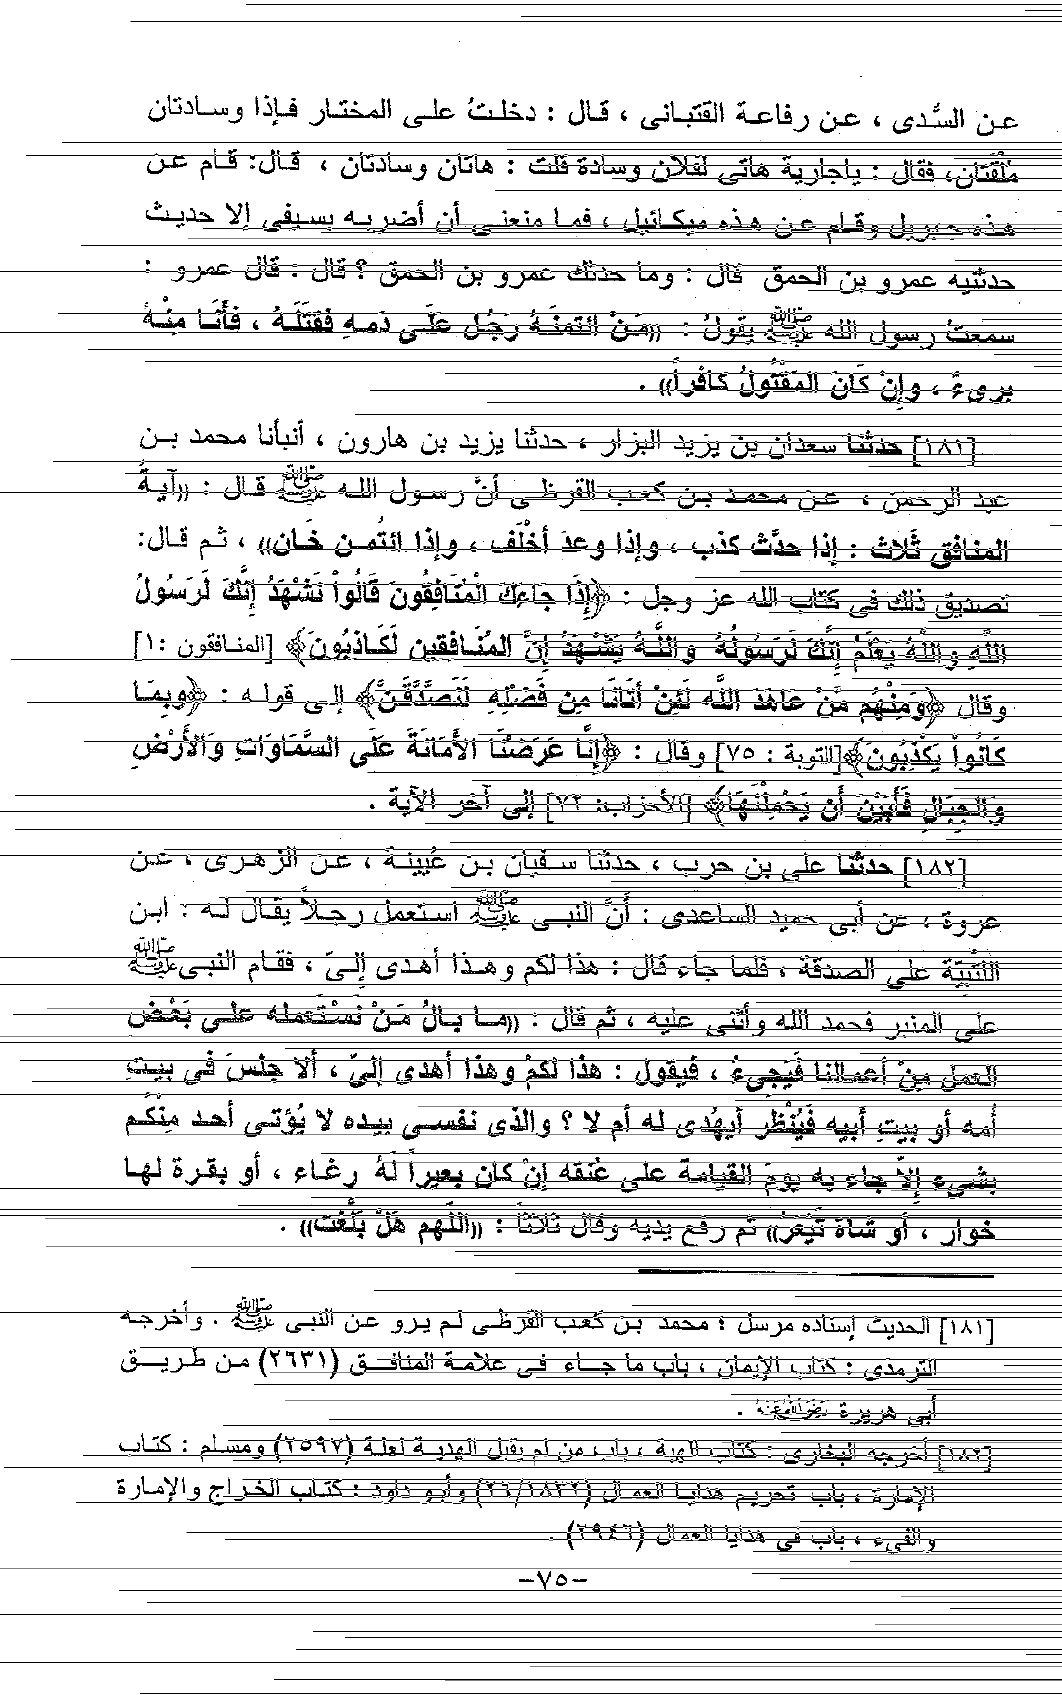 عن السُّدى ، عن رفاعة القتبانى ، قال : دخلتُ على المختار فإذا وسادتان
مُلْقَتان، فقال : ياجارية هاتى لفلان وسادة قلت : هاتان وسادتان ، قال: قام عن
هذه جبريل وقام عن هذه ميكائيل ، فما منعنى أن أضربه بسيفى إلا حديث
حدثنيه عمرو بن الحمق قال : وما حدثك عمرو بن الحمق ؟ قال : قال عمرو :
سمعتُ رسول الله ﷺ يقولُ : «مَنْ ائتمنَهُ رَجُل عَلَى دَمهِ فقَتَلَهُ ، فأَنَا مِنْهُ
برىءٌ ، وإنْ كَانَ المَقْتُولُ كافراً» .
[١٨١] حدثنا سعدان بن يزيد البزار ، حدثنا يزيد بن هارون ، أنبأنا محمد بن
عبد الرحمن ، عن محمد بن كعب القرظى أنَّ رسول الله ﷺ قال : «آيةُ
المنافق ثَلاث : إذا حدَّث كذب ، وإذا وعدَ أخْلَف ، وإذا ائتُمن خَان» ، ثم قال:
تصديق ذلك فى كتاب الله عز وجل : ﴿إذَا جَاءكَ الْمُنَافِقُونَ قَالُواْ نَشْهَدُ إنَّكَ لَرَسُولُ
اللَّهِ واللَّهُ يَعْلَمُ إنَّكَ لَرَسُولُهُ واللَّهُ يَشْهَدُ إنَّ المُنَافقين لَكَاذبُونَ﴾ [المنافقون :١]
وقال ﴿وَمِنْهُم مَّنْ عاهَدَ اللَّه لَئِنْ أتَانَا مِن فَضْلِهِ لَنَصَّدَّقَنَّ﴾ إلى قوله : ﴿وبِمَا
كَانُواْ يَكْذِبُونَ﴾[التوبة : ٧٥] وقال : ﴿إنَّا عَرَضْنَا الأَمَانَةَ عَلَى السَّمَاوَاتِ وَالأَرْضِ
وَالْجِبَالِ فَأَبَيْنَ أَن يَحْمِلْنَهَا﴾ [الأحزاب: ٧٢] إلى آخر الآية .
[١٨٢] حدثنا على بن حرب ، حدثنا سفيان بن عُيينة ، عن الزهرى ، عن
عروة ، عن أبى حميد الساعدى : أنَّ النبى ﷺ استعمل رجلاً يقال له : ابن
اللُّتْبيَّة على الصدقة ، فلما جاء قال : هذا لكم وهذا أهدى إلىّ ، فقام النبى ﷺ
على المنبر فحمد الله وأثنى عليه ، ثم قال : «ما بالُ مَنْ نَسْتَعمله على بَعْض
العمل مِنْ أعمالنا فَيَجىءُ ، فيقول : هذا لكمْ وهذا أهدى إلىّ ، ألا جلسَ فى بيتِ
أمه أو بيتِ أبيه فَيُنْظر أيهْدى له أم لا ؟ والذى نفسى بيده لا يُؤتى أحد مِنْكُم
بشىء إلاَّ جاء به يومَ القيامة على عُنقه إنْ كان بعيراً لَهُ رغاء ، أو بقرة لها
خوار ، أو شاة تَيْعَرُ» ثم رفع يديه وقال ثلاثاً : «اللَّهم هَلْ بلَّغت» .
[١٨١] الحديث إسناده مرسل ؛ محمد بن كعب القرظى لم يرو عن النبى ﷺ . وأخرجه
الترمذى : كتاب الإيمان ، باب ما جاء فى علامة المنافق (٢٦٣١) من طريق
أبى هريرة رضي الله عنه .
[١٨٢] أخرجه البخارى : كتاب الهبة ، باب من لم يقبل الهدية لعلة (٢٥٩٧) ومسلم : كتاب
الإمارة ، باب تحريم هدايا العمال (٢٦/١٨٣٢) وأبو داود : كتاب الخراج والإمارة
والفىء ، باب فى هدايا العمال (٢٩٤٦) .
-٧٥-